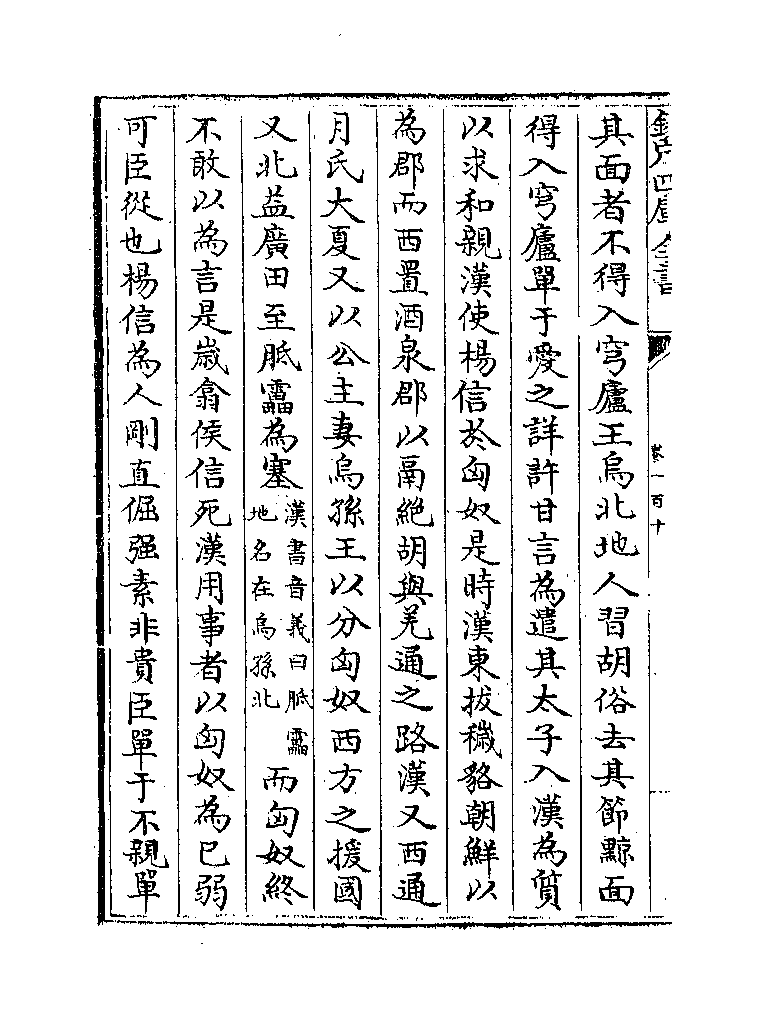 欽定四庫全書
卷一百十
其面者不得入穹廬王烏北地人習胡俗去其節黥面
得入穹廬單于愛之詳許甘言為遣其太子入漢為質
以求和親漢使楊信於匈奴是時漢東拔穢貉朝鮮以
為郡而西置酒泉郡以鬲絶胡與羌通之路漢又西通
月氏大夏又以公主妻烏孫王以分匈奴西方之援國
又北益廣田至胘靁為塞漢書音義曰胘靁地名在烏孫北而匈奴終
不敢以為言是歳翕侯信死漢用事者以匈奴為已弱
可臣從也楊信為人剛直倔强素非貴臣單于不親單